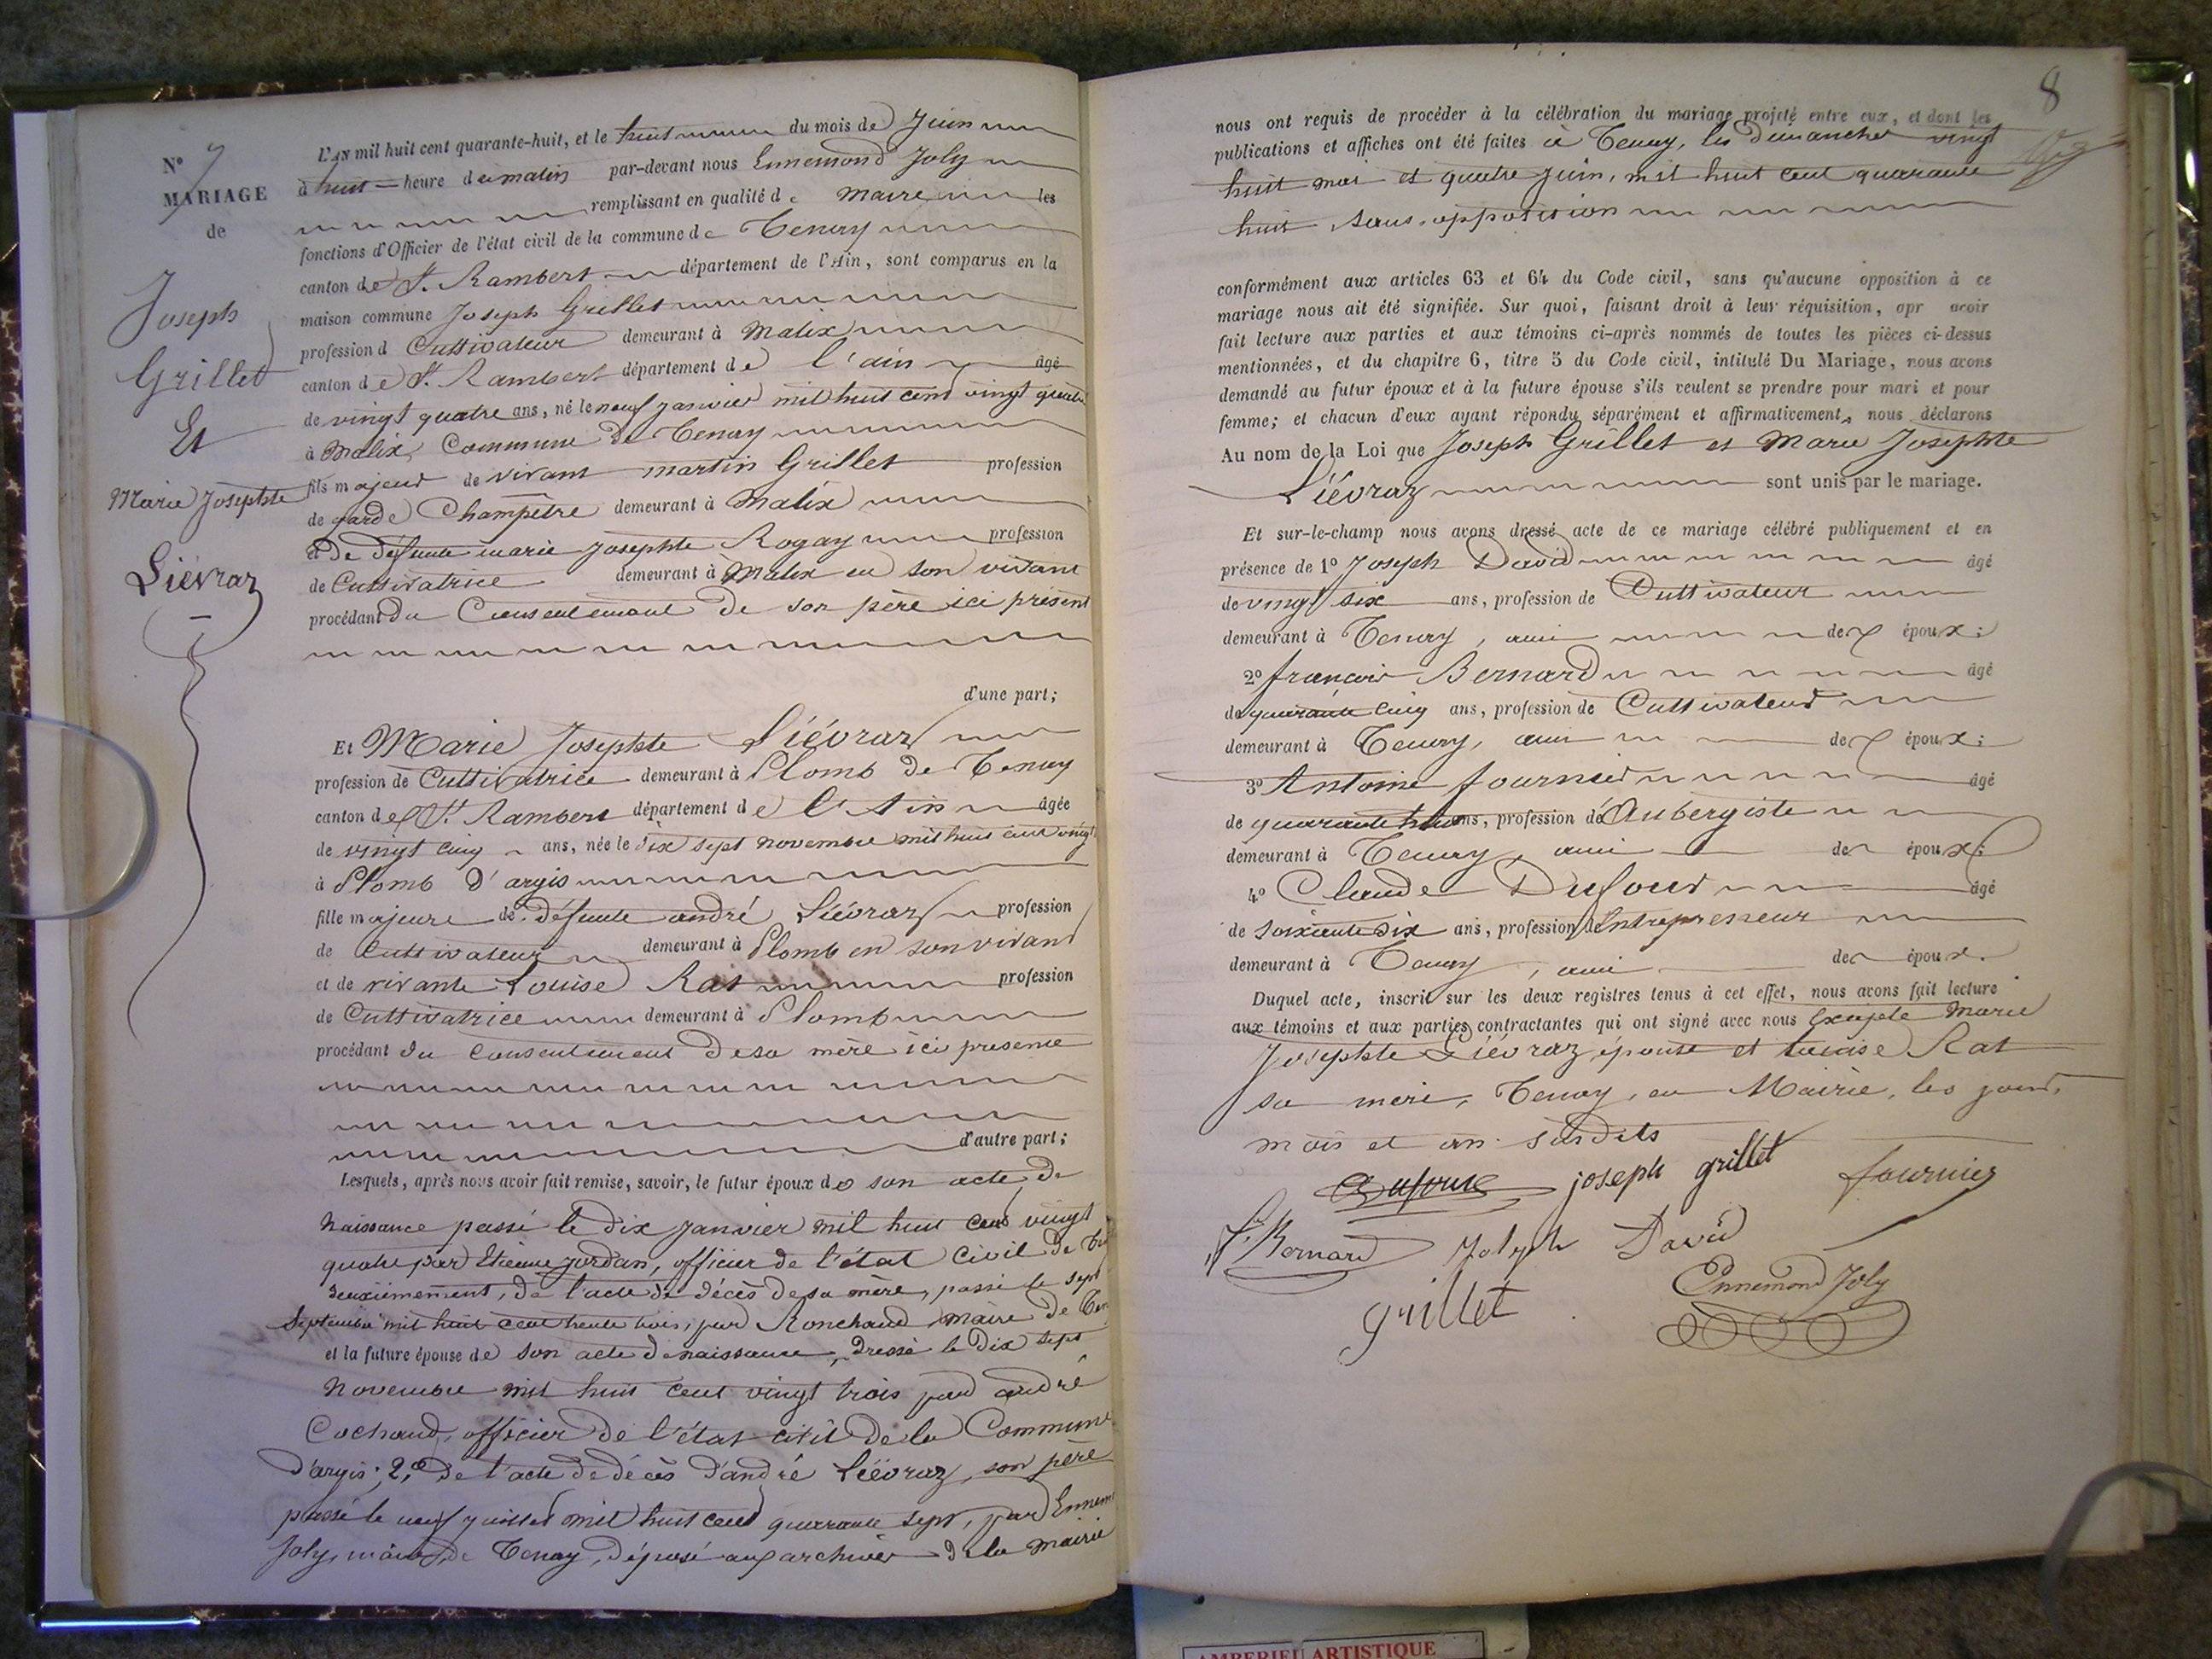 N° 7
MARIAGE
de
Joseph
Grillet
Et
Marie Josephte
Liévraz
L'AN mil huit cent quarante-huit, et le huit du mois de Juin
à huit heure du matin par-devant nous Ennemond Joly
remplissant en qualité de Maire les
fonctions d'Officier de l'état civil de la commune de Tenay
canton de St. Rambert département de l'Ain, sont comparus en la
maison commune Joseph Grillet
profession d Cultivateur demeurant à Malix
canton de St. Rambert département de l'ain âgé
de vingt quatre ans, né le neuf janvier mil huit cent vingt quatre
à Malix, Commune de Tenay
fils majeur de vivant martin Grillet profession
de garde Champêtre demeurant à Malix
et de défunte marie josephte Rogay profession
de Cultivatrice demeurant à Malix en son vivant
procédant du Consentement de son père ici présent
d'une part;
Et Marie Josephte Liévraz
profession de Cultivatrice demeurant à Plomb de Tenay
canton de St. Rambert département de l'Ain âgée
de vingt cinq ans, née le dix sept novembre mil huit cent vingt
à Plomb d'argis
fille majeure de défunte andré Liévraz profession
de Cultivateur demeurant à Plomb en son vivant
et de vivante Louise Rat profession
de Cultivatrice demeurant à Plomb
procédant du consentement de sa mère ici présente
d'autre part;
Lesquels, après nous avoir fait remise, savoir, le futur époux de son acte de
naissance passé le dix janvier mil huit cent vingt
quatre par Etienne jordan, officier de l'état civil de
deuxièmement, de l'acte de décès de sa mère, passé le sept
Septembre mil huit cent trente trois, par Ronchaud, maire de Ten
et la future épouse de son acte de naissance, dressé le dix sept
novembre mil huit cent vingt trois par andré
Cochaud, officier de l'état civil de la Commune
d'argis; 2,e de l'acte de décès d'andré Liévraz, son père
passé le neuf juillet mil huit cent quarante sept, par Ennem
Joly, maire, de Tenay, déposé aux archives de la mairie
8
nous ont requis de procéder à la célébration du mariage projeté entre eux, et dont les
publications et affiches ont été faites à Tenay, les dimanches vingt
huit mai et quatre juin, mil huit cent quarante
huit, sans opposition
conformément aux articles 63 et 64 du Code civil, sans qu'aucune opposition à ce
mariage nous ait été signifiée. Sur quoi, faisant droit à leur réquisition, apr avoir
fait lecture aux parties et aux témoins ci-après nommés de toutes les pièces ci-dessus
mentionnées, et du chapitre 6, titre 5 du Code civil, intitulé Du Mariage, nous avons
demandé au futur époux et à la future épouse s'ils veulent se prendre pour mari et pour
femme; et chacun d'eux ayant répondu séparément et affirmativement, nous déclarons
Au nom de la Loi que Joseph Grillet et Marie Josephte
Liévraz sont unis par le mariage.
Et sur-le-champ nous avons dressé acte de ce mariage célébré publiquement et en
présence de 1° Joseph David âgé
de vingt six ans, profession de Cultivateur
demeurant à Tenay, ami des époux;
2° françois Bernard âgé
de quarante cinq ans, profession de Cultivateur
demeurant à Tenay, ami des époux;
3° Antoine fournier âgé
de quarante ans, profession d'Aubergiste
demeurant à Tenay, ami des époux;
4° Claude Dufour âgé
de soixante dix ans, profession d'Entrepreneur
demeurant à Tenay, ami des époux.
Duquel acte, inscrit sur les deux registres tenus à cet effet, nous avons fait lecture
aux témoins et aux parties contractantes qui ont signé avec nous Excepté Marie
Josephte Liévraz, épouse et Louise Rat
sa mère, Tenay, en Mairie, les jour,
mois et an susdits
Dufour joseph grillet fournier
f. Bernard Joseph David
grillet Ennemond Joly
AMBERIEU ARTISTIQUE